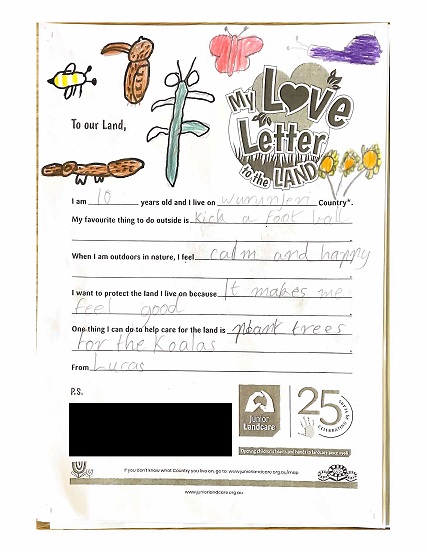 My Love
Letter
to the LAND
To our Land,
I am 10 years old and I live on wurunjeri Country*.
My favourite thing to do outside is kick a foot ball
When I am outdoors in nature, I feel calm and happy
I want to protect the land I live on because It makes me
feel good
One thing I can do to help care for the land is plant trees
for the Koalas
From Lucas
P.S.
Junior
Landcare
25
Opening children's hearts and hands to landcare since 1998
If you don't know what Country you live on, go to: www.juniorlandcare.org.au/map
www.juniorlandcare.org.au